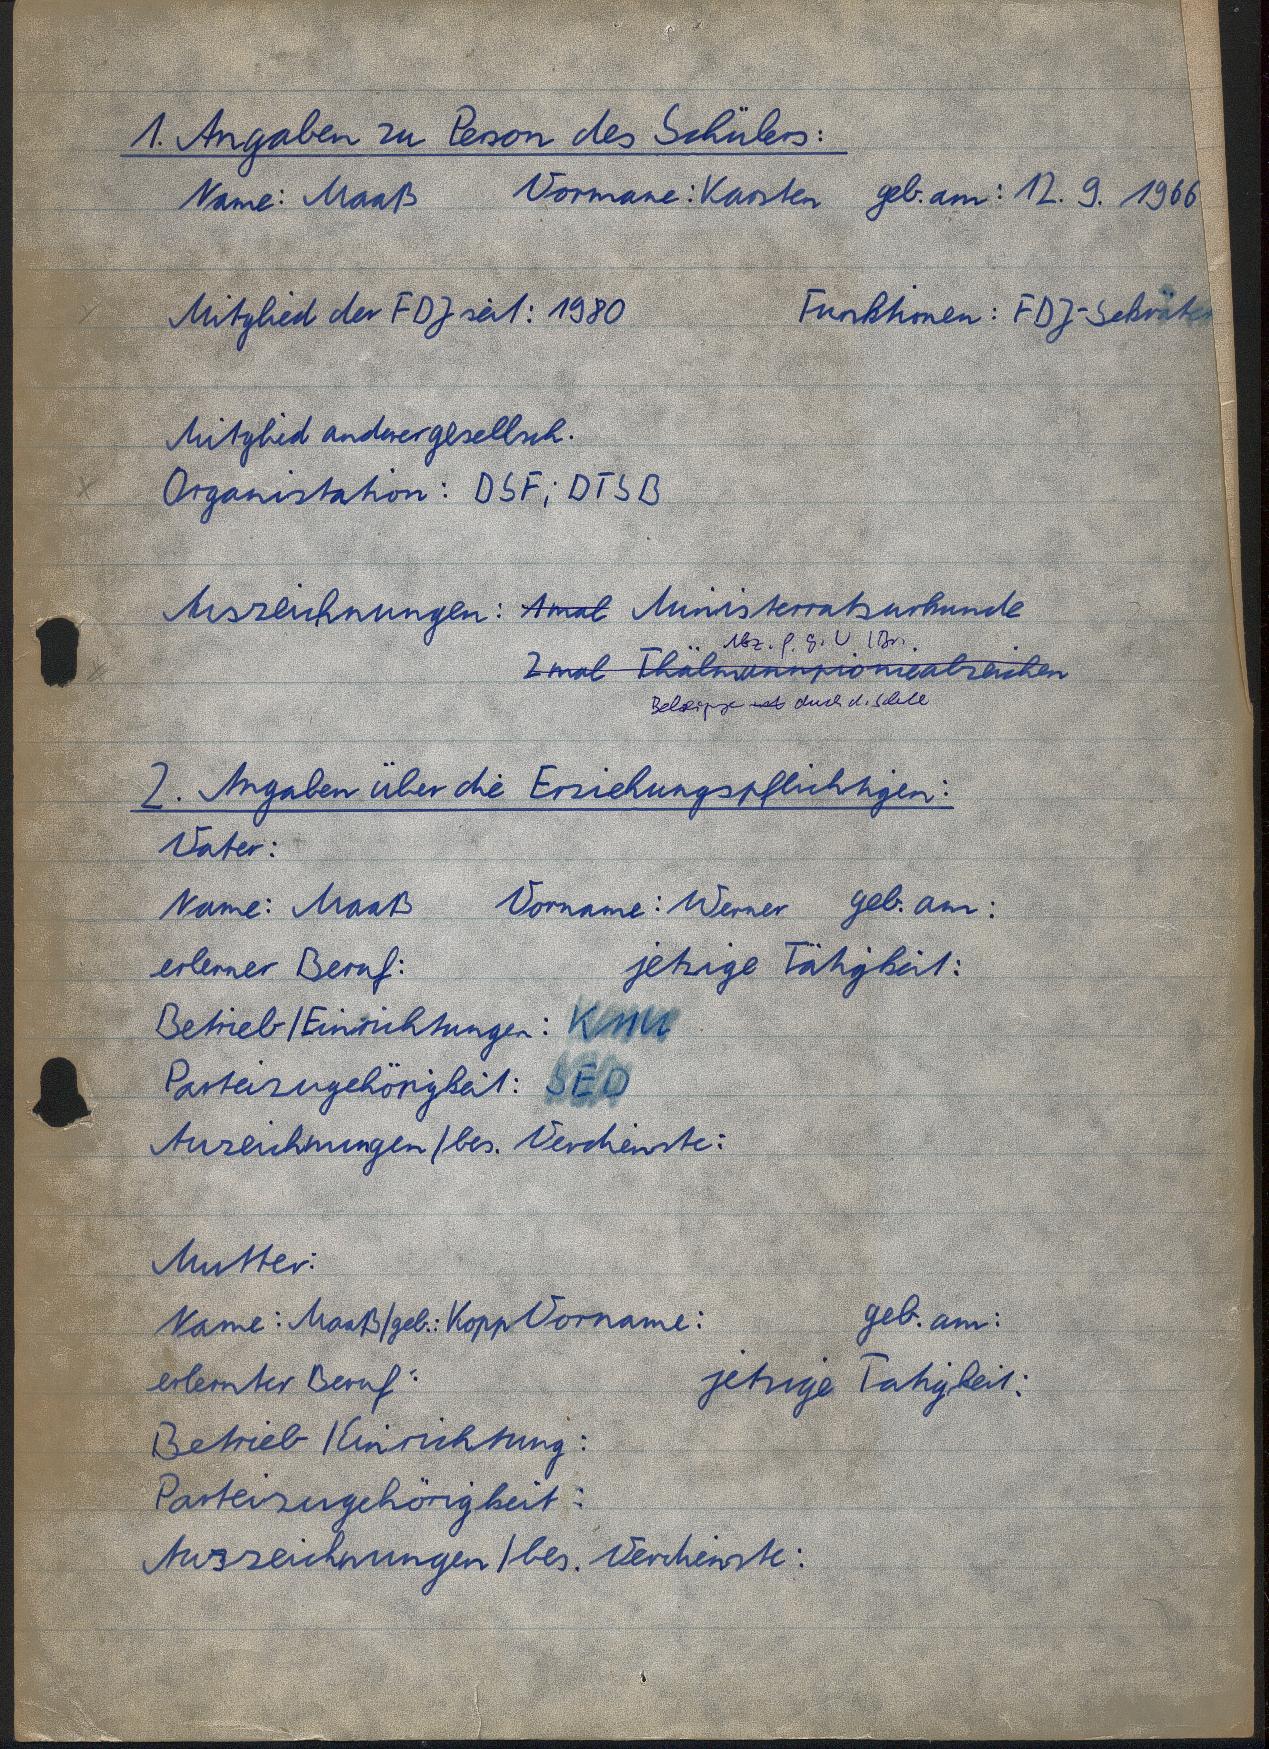 1. Angaben zu Person des Schülers:
Name: Maaß Vormane: Karsten geb. am: 12. 9. 1966
Mitglied der FDJ seit: 1980 Funktionen: FDJ-Sekräter
Mitglied anderer gesellsch.
Organistation: DSF; DTSB
Auszeichnungen: 1mal Ministerratsurkunde
Abz. f. g. U.
2mal Thälmannpionieabzeichen
durch d. Schule
2. Angaben über die Erziehungspflichtigen:
Vater:
Name: Maaß Vorname: Werner geb. am:
erlerner Beruf: jetzige Tätigkeit:
Betrieb/Einrichtungen: KMU
Parteizugehörigkeit: SED
Auzeichnungen/bes. Verdienste:
Mutter:
Name: Maaß/geb.: Kopp Vorname: geb. am:
erlernter Beruf: jetzige Tatigkeit:
Betrieb/Einrichtung:
Parteizugehörigkeit:
Auszeichnungen/bes. Verdienste: